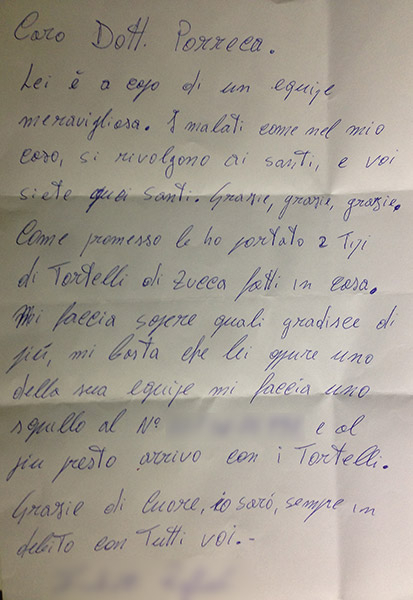 Caro Dott. Porreca.
Lei è a capo di un equipe
meravigliosa. I malati come nel mio
caso, si rivolgono ai santi, e voi
siete quei santi. Grazie, grazie, grazie.
Come promesso le ho portato 2 Tipi
di Tortelli di zucca fatti in casa.
Mi faccia sapere quali gradisce di
più, mi basta che lei oppure uno
della sua equipe mi faccia uno
squillo al N° e al
più presto arrivo con i Tortelli.
Grazie di Cuore, io sarò, sempre in
debito con Tutti voi.-